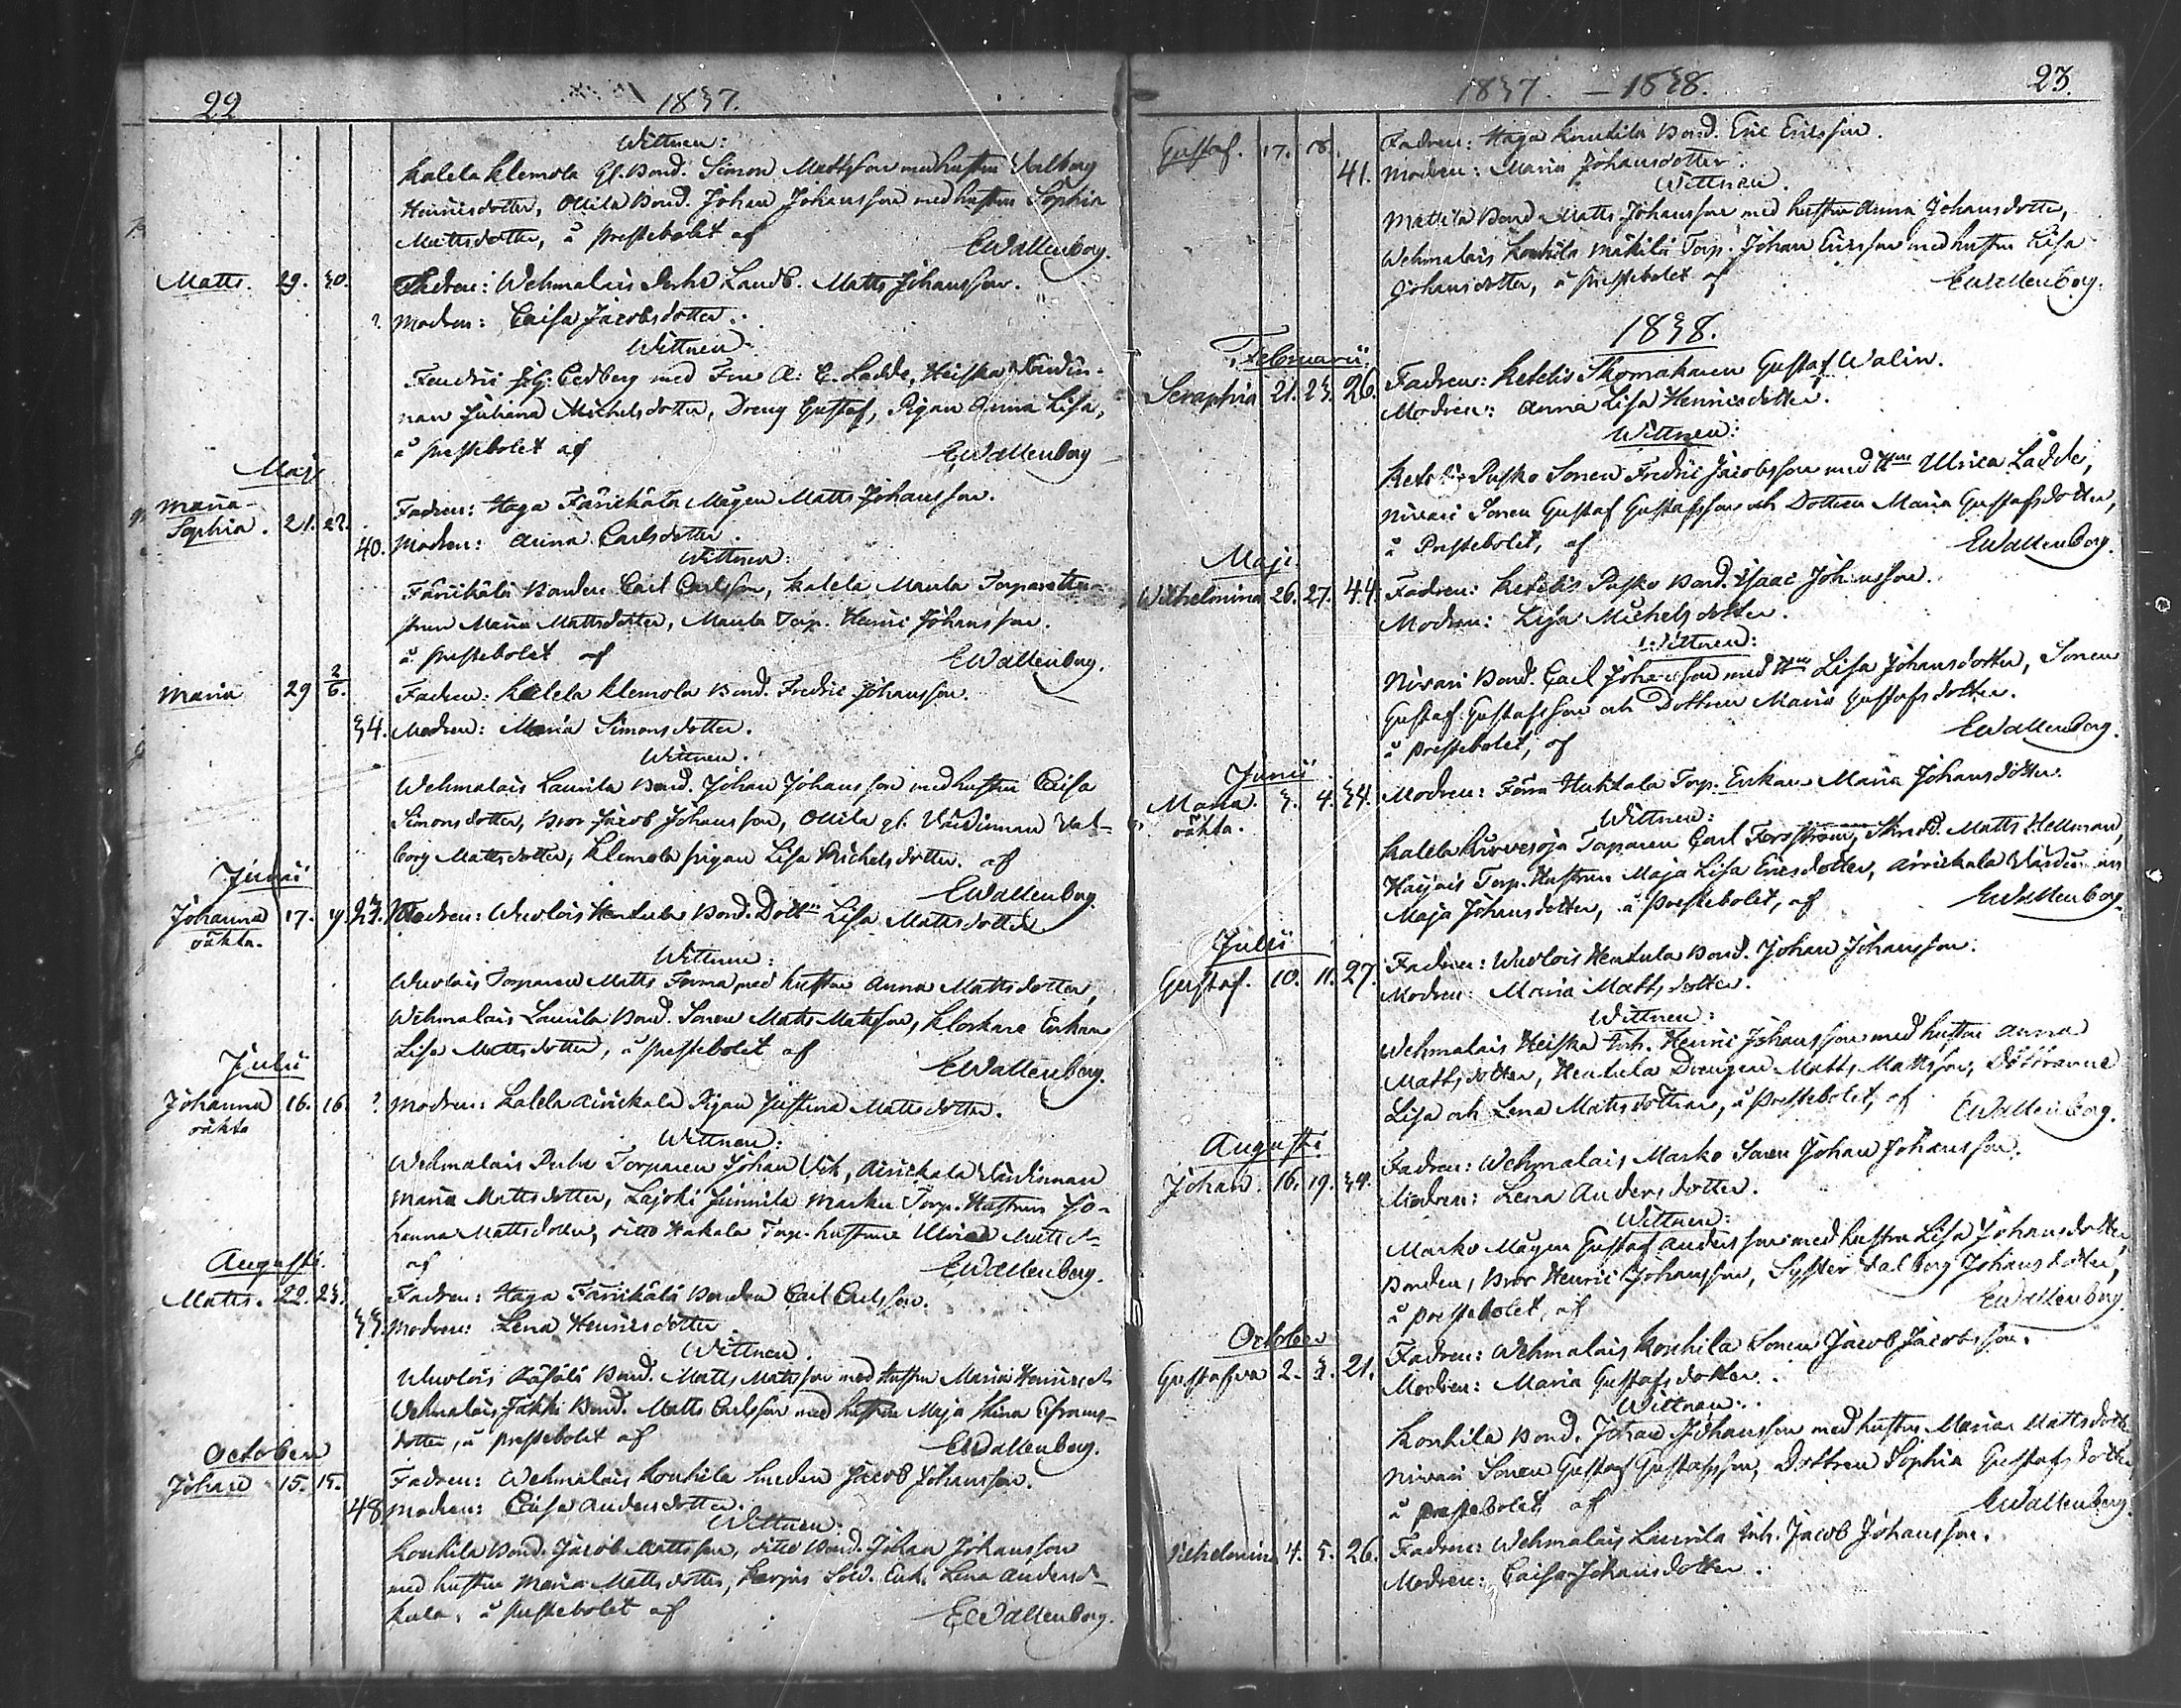 22
1837.
Wittnen:
Kalela Klemola Gl. Bond. Simon Mattsson med hustru Valborg
Henricsdotter, Ollila Bond. Johan Johansson med hustru Sophia
Mattsdotter, å prestebolet af
EWallenborg.
Matts. 29. 30. Fadren: Wehmalais Landb. Matts Johansson.
? Modren: Caisa Jacobsdotter.
Wittnen
Cedberg med Fru A: C. Ladde, Heiska Värdin-
nan Juliana Michelsdotter, Dreng Gustaf, Pigan Anna Lisa,
å prestebolet af
EWallenborg
Maji
Maria-
Sophia. 21. 22. Fadren: Haga Färikälä Mågen Matts Johansson.
40. Modren: Anna Carlsdotter.
Wittnen:
Färikälä Bonden Carl Carlsson, Kalela Maula Torpare hu-
strun Maria Mattsdotter, Maula Torp. Henric Johansson.
å prestebolet af
EWallenborg.
Maria 29 2/6. Fadren: Kalela Klemola Bond. Fredric Johansson.
34. Modren: Maria Simonsdotter.
Wittnen.
Wehmalais Laurila Bond. Johan Johansson med hustru Caisa
Simonsdotter, Bror Jacob Johansson, Ollila gl. Värdinnan Val-
borg Mattsdotter, Klemola pigan Lisa Michelsdotter. af
EWallenborg.
Junii
Johanna 17. 19. 23. Modren: Wuolois Hentula Bond. Dott:n Lisa Mattsdotter.
oäkta.
Wittnen:
Wuolois Torparen Matts med hustru Anna Mattsdotter,
Wehmalais Laurila Bond. Sonen Matts Mattsson, Klockare Enkan
Lisa Mattsdotter, å prestebolet af
EWallenborg.
Julii
Johanna 16. 16. ? Modren: Kalela Airickala Pigan Justina Mattsdotter.
oäkta
Wittnen:
Wehmalais Torparen Johan Vik, Airickala Värdinnan
Maria Mattsdotter, Lajoki Junnila Marku Torp. Hustrun Jo-
hanna Mattsdotter, ditto Hakala Torp. hustrun Ulrica Matsd:r
af
EWallenborg.
Augusti.
Matts. 22. 23. Fadren: Haga Färikälä Bonden Carl Carlsson.
33. Modren: Lena Henricsdotter
Wittnen.
Wuolois Bond. Matts Mattsson med hustru Maria Henricsd:r
Wehmalais Bond. Matts Carlsson med hustru Maja Stina Efraims-
dotter, å prestebolet af
EWallenborg.
October
Johan 15. 15. Fadren: Wehmalais Konhila Jacob Johansson.
48. Modren: Caisa Andersdotter.
Wittnen.
Konhila Bond. Jacob Mattsson, ditto Bond. Johan Johansson
med hustru Maria Mattsdotter, Sold. Enk. Lena Andersd-
å prestebolet af
EWallenborg.
1837. - 1838.
23.
Gustaf. 17. 18. Fadren: Haga Knuutila Bond. Eric Ericsson.
41. Modren: Maria Johansdotter.
Wittnen.
Mattila Bond. Matts Johansson med hustru Anna Johansdotter,
Wehmalais Konhila Mäkilä Torp. Johan Ericsson med hustru Lisa
Johansdotter, å prestebolet af
EWallenborg.
1838.
Februarii.
Seraphia 21. 23. 26. Fadren: Ketelis Skomakaren Gustaf Walin.
Modren: Anna Lisa Henricsdotter.
Wittnen:
Ketelis Pusko Sonen Fredric Jacobsson med H:un Ulrica Ladde,
Nirvari Sonen Gustaf Gustafsson och Dottren Maria Gustafsdotter,
å Prestebolet, af
EWallenborg.
Maji
Wilhelmina 26. 27. 44. Fadren: Ketelis Pusko Bond. Isaac Johansson.
Modren: Lisa Michelsdotter.
Wittnen:
Nirvari Bond. Carl Johansson med H:un Lisa Johansdotter, Sonen
Gustaf Gustafsson och Dottren Maria Gustafsdotter.
å prestebolet, af
EWallenborg.
Junii
Maria. 3. 4. 34. Modren: Huhtala Torp. Enkan Maria Johansdotter.
oäkta.
Wittnen:
Kalela Kurvesoja Torparen Carl Forsström, Skredd. Matts Hellman,
Torp. Hustrun Maja Lisa Ericsdotter, Airickala Värdinnan
Maja Johansdotter, å prestebolet, af
EWallenborg.
Julii
Gustaf. 10. 11. 27. Fadren: Wuolois Hentula Bond. Johan Johansson.
Modren: Maria Mattsdotter.
Wittnen:
Wehmalais Heiska Inh. Henric Johansson med hustru Anna
Mattsdotter, Hentula Drengen Matts Mattsson, Döttrarne
Lisa och Lena Mattsdöttrar, å prestebolet, af
EWallenborg.
Augusti
Johan. 16. 19. 39. Fadren: Wehmalais Marko Sonen Johan Johansson.
Modren: Lena Andersdotter.
Wittnen:
Marko Mågen Gustaf Andersson med hustru Lisa Johansdotter,
Bonden, Bror Henric Johansson, Syster Valborg Johansdotter,
å prestebolet, af
EWallenborg.
October
Gustafva 2. 3. 21. Fadren: Wehmalais Konhila Sonen Jacob Jacobsson.
Modren: Maria Gustafsdotter.
Wittnen.
Konhila Bond. Johan Johansson med hustru Maria Mattsdotter
Nirvari Sonen Gustaf Gustafsson, Dottren Sophia Gustafsdotter
å prestebolet af
EWallenberg.
Vilhelmina 4. 5. 26. Fadren: Wehmalais Laurila Inh. Jacob Johansson.
Modren: Caisa Johansdotter.